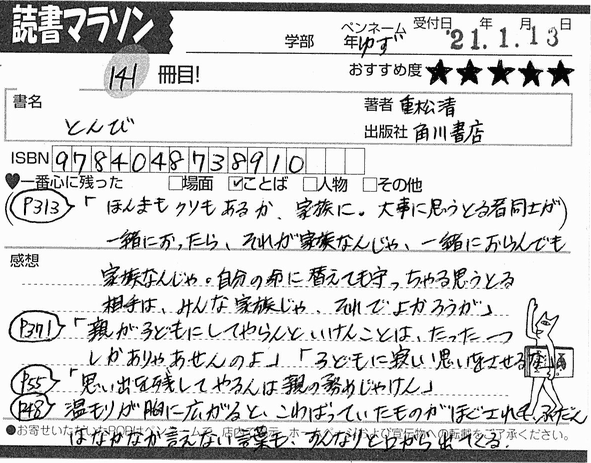 読書マラソン
学部 年 ペンネーム ゆず 受付日 '21年 1月 13日
141 冊目! おすすめ度 ★★★★★
書名 とんび
著者 重松清
出版社 角川書店
ISBN 9784048738910
♥一番心に残った □場面 ☑ことば □人物 □その他
P313 「ほんまもクソもあるか、家族に。大事に思うとる者同士が
一緒におったら、それが家族なんじゃ、一緒におらんでも
感想
家族なんじゃ。自分の命に替えても守っちゃる思うとる
相手は、みんな家族じゃ、それでよかろうが」
P371 「親が子どもにしてやらんといけんことは、たった一つ
しかありゃあせんのよ」「子どもに寂しい思いをさせるな」
P55 「思い出を残してやるんは親の務めじゃけん」
P48 温もりが胸に広がると、こわばっていたものがほぐされて、ふだん
●お寄せいただいたPOPはペンネームで、店内で展示、ホームページおよび宣伝物への転載をご了承ください。
はなかなか言えない言葉も、すんなりと口から出てくる。